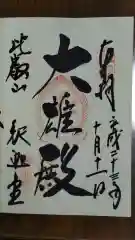 奉拝 平成二十三年
十月十一日
大雄殿
比叡山 釈迦堂